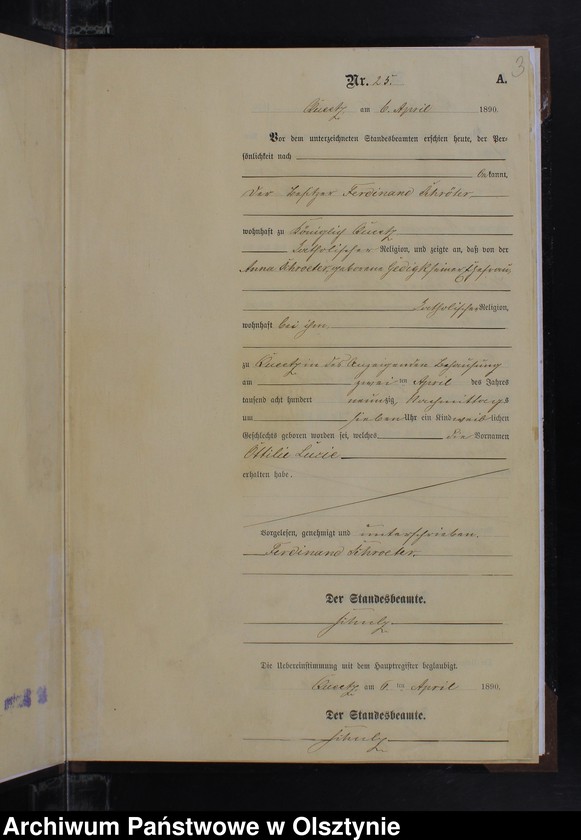 3
Nr. 25. A.
am 6. April 1890.
Vor dem unterzeichneten Standesbeamten erschien heute, der Per-
sönlichkeit nach
bekannt,
der Besitzer Ferdinand Schröter
wohnhaft zu Königlich
katholischer Religion, und zeigte an, daß von der
Anna Schroeter, geborene seiner Ehefrau,
katholischer Religion,
wohnhaft bei ihm
zu in des Anzeigenden Behausung
am zwei ten April des Jahres
tausend acht hundert neunzig, Nachmittags
um sieben Uhr ein Kind weiblichen
Geschlechts geboren worden sei, welches die Vornamen
Ottilie Lucie
erhalten habe.
Vorgelesen, genehmigt und unterschrieben.
Ferdinand Schroeter.
Der Standesbeamte.
Schulz
Die Uebereinstimmung mit dem Hauptregister beglaubigt.
am 6 ten April 1890.
Der Standesbeamte.
Schulz
Archiwum Państwowe w Olsztynie